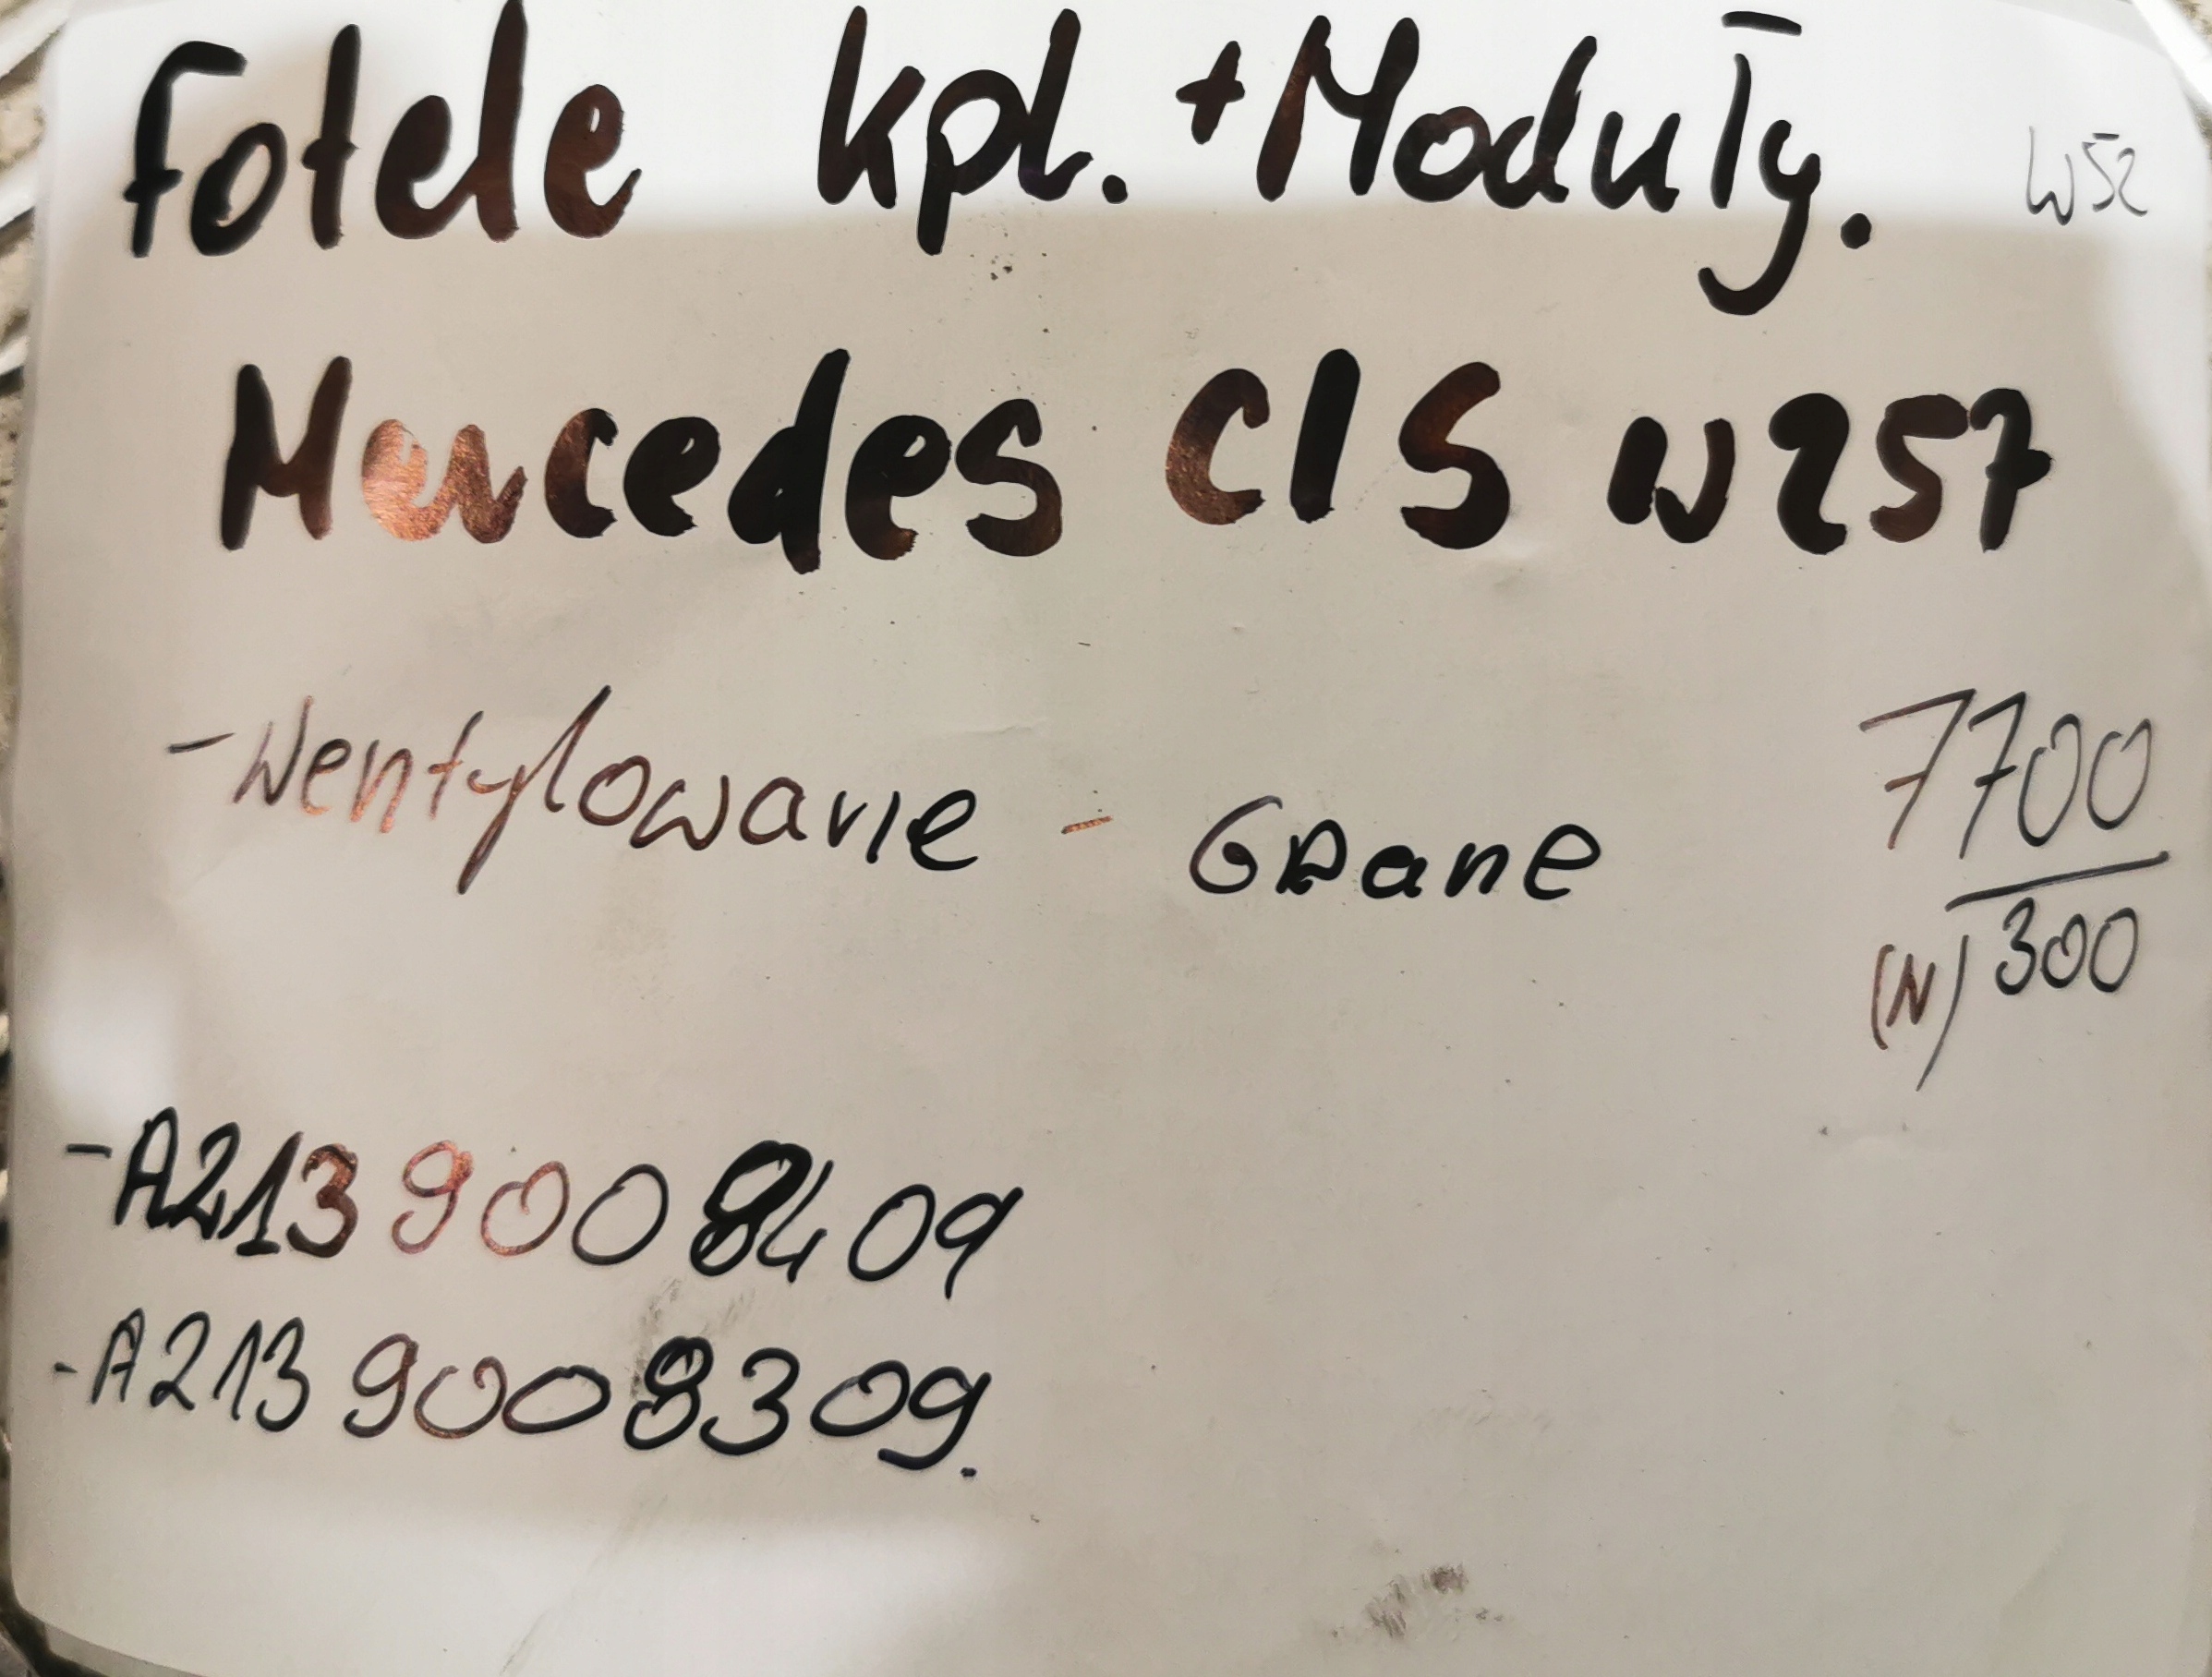 Fotele kpl. + Moduły. W52
Mercedes ClS W257
- Wentylowane - Grane 7700
(N) 300
- A213 900 8409
- A213 900 8309.